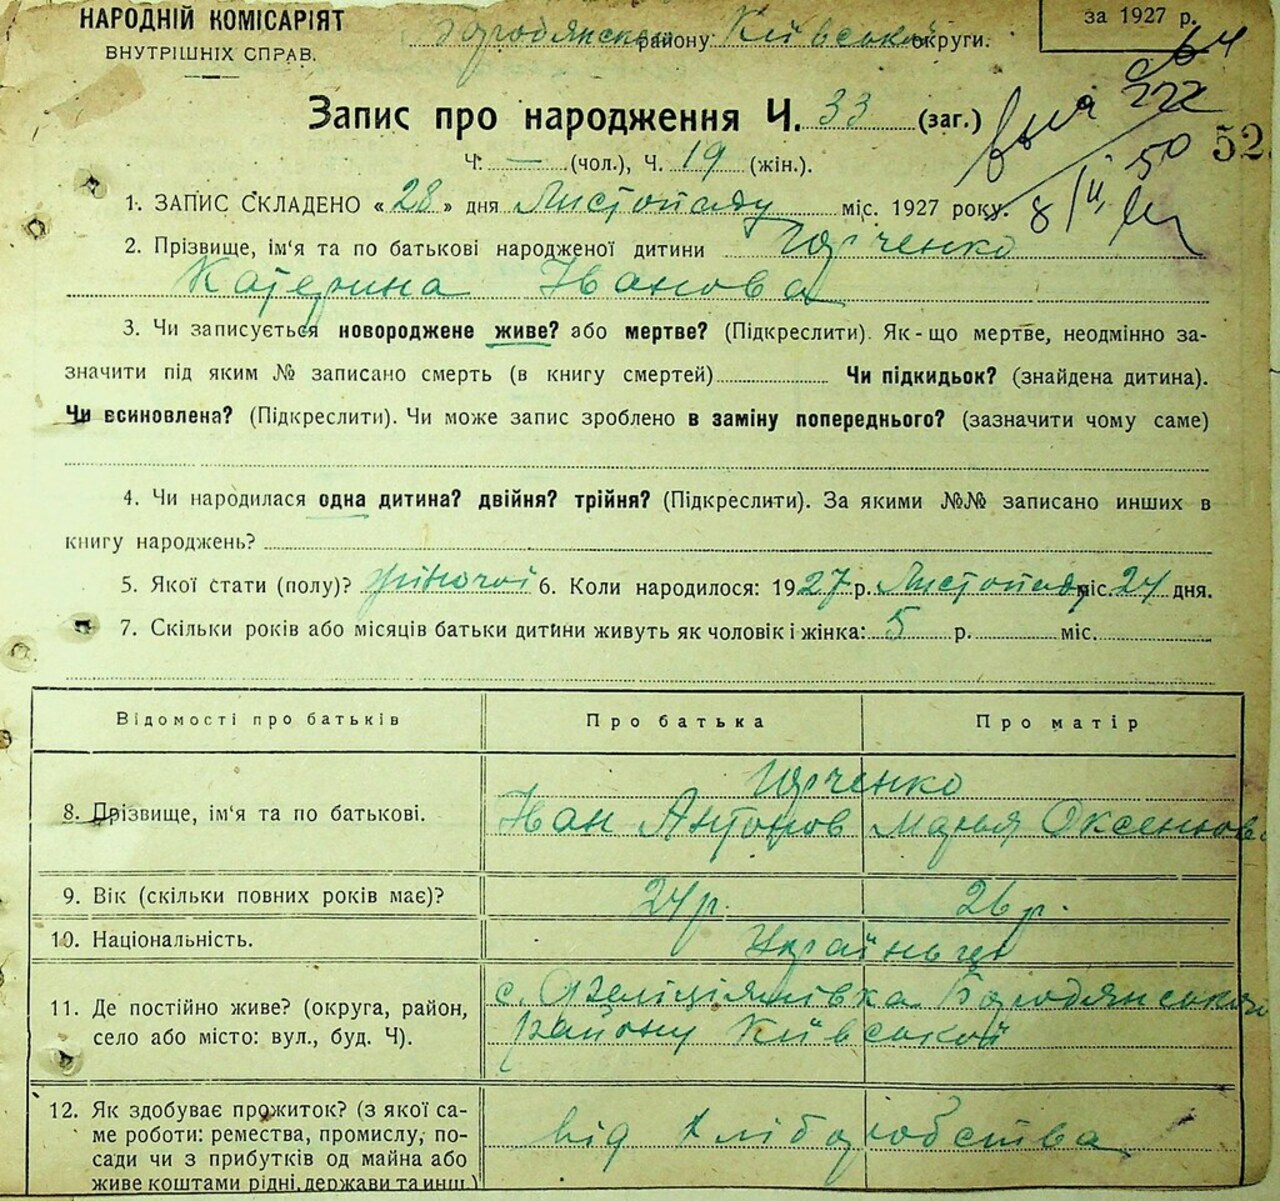 НАРОДНІЙ КОМІСАРІЯТ
ВНУТРІШНІХ СПРАВ.
Бородянського району Київської округи.
за 1927 р.
Запис про народження Ч. 33 (заг.)
52
Ч. — (чол.), Ч. 19 (жін.).
1. ЗАПИС СКЛАДЕНО « 28 » дня Листопаду міс. 1927 року.
2. Прізвище, ім'я та по батькові народженої дитини Юрченко
Катерина Іванова
3. Чи записується новороджене живе? або мертве? (Підкреслити). Як-що мертве, неодмінно за-
значити під яким № записано смерть (в книгу смертей) Чи підкидьок? (знайдена дитина).
Чи всиновлена? (Підкреслити). Чи може запис зроблено в заміну попереднього? (зазначити чому саме)
4. Чи народилася одна дитина? двійня? трійня? (Підкреслити). За якими №№ записано инших в
книгу народжень?
5. Якої стати (полу)? жіночої 6. Коли народилося: 1927 р. Листопаду міс. 24 дня.
7. Скільки років або місяців батьки дитини живуть як чоловік і жінка: 5 р. міс.
Відомості про батьків Про батька Про матір
Юрченко
8. Прізвище, ім'я та по батькові. Іван Антонов Марья Оксентьова
9. Вік (скільки повних років має)? 24 р. 26 р.
10. Національність. Українці
11. Де постійно живе? (округа, район,
село або місто: вул., буд. Ч).
с. Феліціянівка Бородянського
району Київської
12. Як здобуває прожиток? (з якої са-
ме роботи: ремества, промислу, по-
сади чи з прибутків од майна або
живе коштами рідні, держави та инш.)
від хліборобства